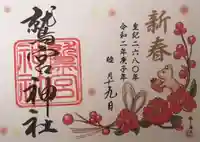 新春
皇紀二六八〇年
令和二年庚子年
睦月十九日
鷲宮神社